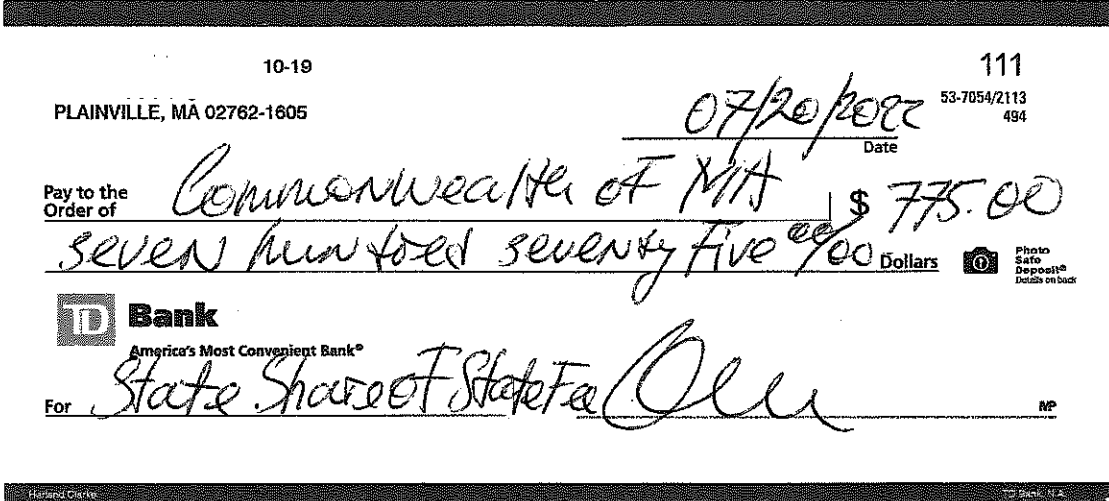 10-19
111
PLAINVILLE, MA 02762-1605
53-7054/2113
494
07/20/2022
Date
Pay to the
Order of Commonwealth of MA $ 775.00
seven hundred seventy Five 00/00 Dollars
Photo
Safe
Deposit®
Details on back
TD Bank
America's Most Convenient Bank®
For State Share of State Fee
MP
Harland Clarke
TD Bank, N.A.